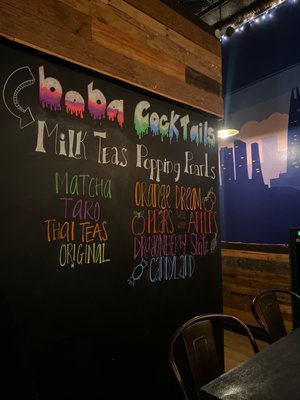 boba Cocktails
Milk Teas Popping Pearls
MATCHA
TARO
THAI TEAS
ORIGINAL
ORANGE DROOM
PEARS APPLES
DRAGONBERRY SLUSH
CANDYLAND